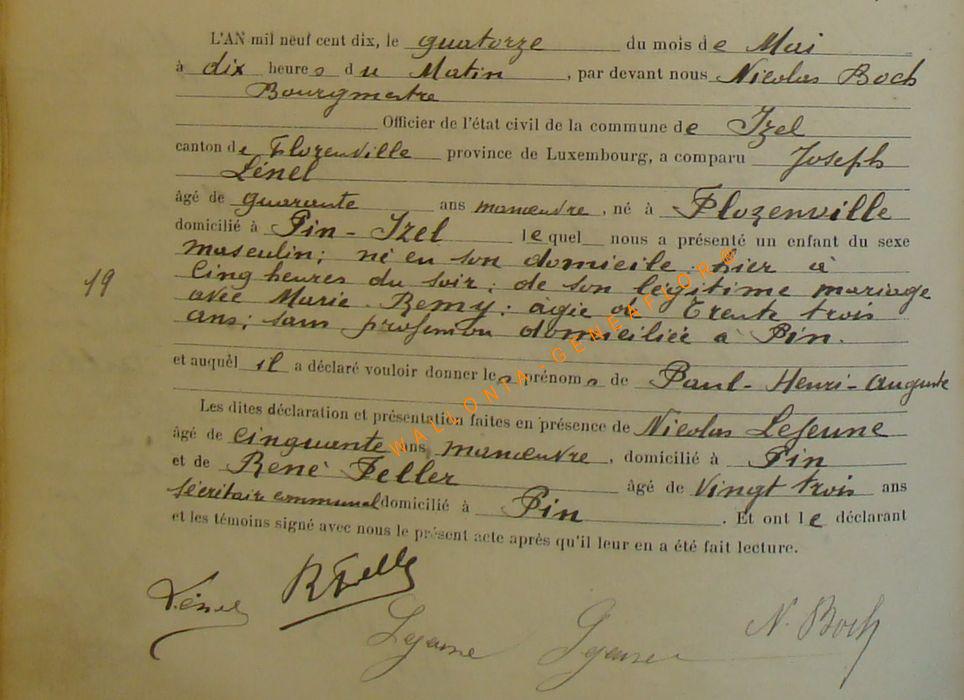 L'AN mil neuf cent dix, le quatorze du mois de Mai
à dix heures du Matin, par devant nous Nicolas Boch
Bourgmestre
Officier de l'état civil de la commune de Izel
canton de Florenville province de Luxembourg, a comparu Joseph
Lénel
âgé de quarante ans manœuvre, né à Florenville
domicilié à Pin-Izel lequel nous a présenté un enfant du sexe
masculin; né en son domicile, hier à
19 cinq heures du soir; de son légitime mariage
avec Marie Remy; âgée de Trente trois
ans; sans profession domiciliée à Pin.
et auquel il a déclaré vouloir donner les prénoms de Paul-Henri-Auguste
Les dites déclaration et présentation faites en présence de Nicolas Lejeune
âgé de cinquante ans manœuvre, domicilié à Pin
et de René Feller âgé de vingt trois ans
sécritaire communal domicilié à Pin. Et ont le déclarant
et les témoins signé avec nous le présent acte après qu'il leur en a été fait lecture.
Lénel RFeller
Lejeune N. Boch
WALLONIA-GENEAFLOR©